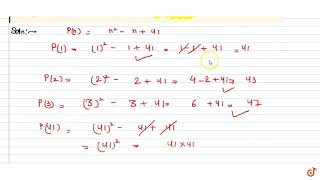 Soln:→ P(n) = n² - n + 41
P(1) = (1)² - 1 + 41 = 1 - 1 + 41 = 41
P(2) = (2)² - 2 + 41 = 4 - 2 + 41 = 43
P(3) = (3)² - 3 + 41 = 6 + 41 = 47
P(41) = (41)² - 41 + 41
= (41)² = 41 × 41
doubtnut